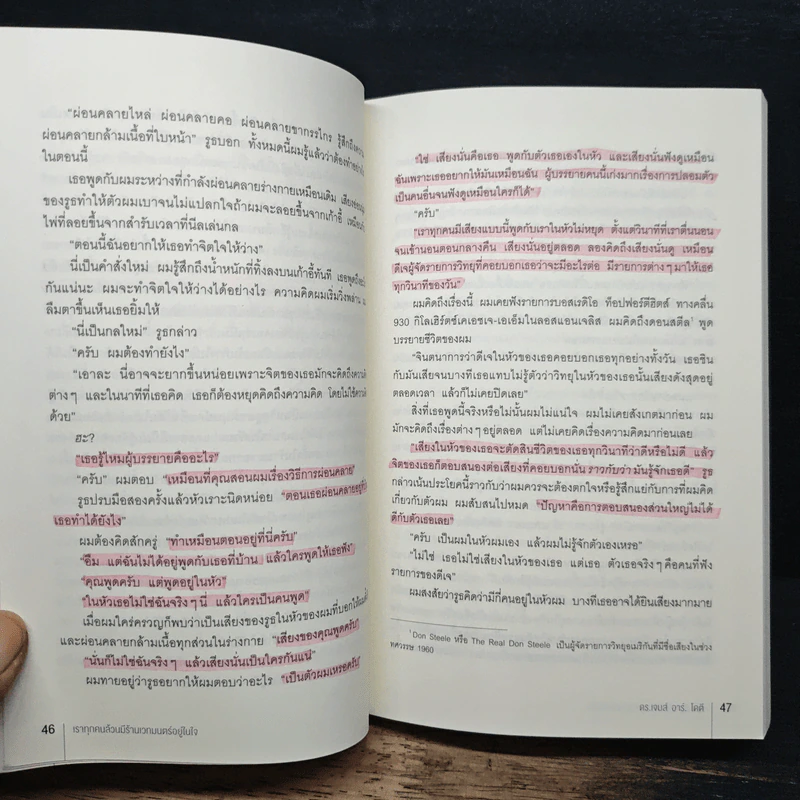 “ผ่อนคลายไหล่ ผ่อนคลายคอ ผ่อนคลายขากรรไกร รู้สึกถึงความ
ผ่อนคลายกล้ามเนื้อที่ใบหน้า” รูธบอก ทั้งหมดนี้ผมรู้แล้วว่าต้องทำอย่าง
ในตอนนี้
เธอพูดกับผมระหว่างที่กำลังผ่อนคลายร่างกายเหมือนเดิม
ของรูธทำให้ตัวผมเบาจนไม่แปลกใจถ้าผมจะลอยขึ้นจากเก้าอี้
ไพ่ที่ลอยขึ้นจากสำรับเวลาที่นีลเล่นกล
“ตอนนี้ฉันอยากให้เธอทำจิตใจให้ว่าง”
นี่เป็นคำสั่งใหม่ ผมรู้สึกถึงน้ำหนักที่ทิ้งลงบนเก้าอี้ทันที เธอพูดถึง
กันแน่นะ ผมจะทำจิตใจให้ว่างได้อย่างไร ความคิดผมเริ่มวิ่งพล่าน
ลืมตาขึ้นเห็นเธอยิ้มให้
“นี่เป็นกลใหม่” รูธกล่าว
“ครับ ผมต้องทำยังไง”
“เอาละ นี่อาจจะยากขึ้นหน่อยเพราะจิตของเธอมักจะคิดถึงความคิด
ต่างๆ และในนาทีที่เธอคิด เธอก็ต้องหยุดคิดถึงความคิด โดยไม่ใช้ความคิด
ด้วย”
ฮะ?
“เธอรู้ไหมผู้บรรยายคืออะไร”
“ครับ” ผมตอบ “เหมือนที่คุณสอนผมเรื่องวิธีการผ่อนคลาย”
รูธปรบมือสองครั้งแล้วหัวเราะนิดหน่อย “ตอนเธอผ่อนคลายอยู่
เธอทำได้ยังไง”
ผมต้องคิดสักครู่ “ทำเหมือนตอนอยู่ที่นี่ครับ”
“อืม แต่ฉันไม่ได้อยู่พูดกับเธอที่บ้าน แล้วใครพูดให้เธอฟัง”
“คุณพูดครับ แต่พูดอยู่ในหัว”
“ในหัวเธอไม่ใช่ฉันจริงๆ นี่ แล้วใครเป็นคนพูด”
เมื่อผมใคร่ครวญก็พบว่าเป็นเสียงของรูธในหัวของผมที่บอกให้ผม
และผ่อนคลายกล้ามเนื้อทุกส่วนในร่างกาย “เสียงของคุณพูดครับ”
“นั่นก็ไม่ใช่ฉันจริงๆ แล้วเสียงนั่นเป็นใครกันแน่”
ผมทายอยู่ว่ารูธอยากให้ผมตอบว่าอะไร “เป็นตัวผมเหรอครับ”
46 เราทุกคนล้วนมีร้านเวทมนตร์อยู่ในใจ
“ใช่ เสียงนั่นคือเธอ พูดกับตัวเธอเองในหัว และเสียงนั่นฟังดูเหมือน
ฉันเพราะเธออยากให้มันเหมือนฉัน ผู้บรรยายคนนี้เก่งมากเรื่องการปลอมตัว
เป็นคนอื่นจนฟังดูเหมือนใครก็ได้”
“ครับ”
“เราทุกคนมีเสียงแบบนี้พูดกับเราในหัวไม่หยุด ตั้งแต่วินาทีที่เราตื่นนอน
จนเข้านอนตอนกลางคืน เสียงนั่นอยู่ตลอด ลองคิดถึงเสียงนั่นดู เหมือน
ดีเจผู้จัดรายการวิทยุที่คอยบอกเธอว่าจะมีอะไรต่อ มีรายการต่างๆ มาให้เธอ
ทุกวินาทีของวัน”
ผมคิดถึงเรื่องนี้ ผมเคยฟังรายการบอสเรดิโอ ท็อปฟอร์ตีฮิตส์ ทางคลื่น
930 กิโลเฮิร์ตซ์เคเอชเจ-เอเอ็มในลอสแอนเจลิส ผมคิดถึงดอนสตีล¹ พูด
บรรยายชีวิตของผม
“จินตนาการว่าดีเจในหัวของเธอคอยบอกเธอทุกอย่างทั้งวัน เธอชิน
กับมันเสียจนบางทีเธอแทบไม่รู้ตัวว่าวิทยุในหัวของเธอนั้นเสียงดังสุดอยู่
ตลอดเวลา แล้วก็ไม่เคยปิดเลย”
สิ่งที่เธอพูดนี้จริงหรือไม่นั้นผมไม่แน่ใจ ผมไม่เคยสังเกตมาก่อน ผม
มักจะคิดถึงเรื่องต่างๆ อยู่ตลอด แต่ไม่เคยคิดเรื่องความคิดมาก่อนเลย
“เสียงในหัวของเธอจะตัดสินชีวิตของเธอทุกวินาทีว่าดีหรือไม่ดี แล้ว
จิตของเธอก็ตอบสนองต่อเสียงที่คอยบอกนั่น ราวกับว่ามันรู้จักเธอดี” รูธ
กล่าวเน้นประโยคนี้ราวกับว่าผมควรจะต้องตกใจหรือรู้สึกแย่กับการที่ผมคิด
เกี่ยวกับตัวผม ผมสับสนไปหมด “ปัญหาคือการตอบสนองส่วนใหญ่ไม่ได้
ดีกับตัวเธอเลย”
“ครับ เป็นผมในหัวผมเอง แล้วผมไม่รู้จักตัวเองเหรอ”
“ไม่ใช่ เธอไม่ใช่เสียงในหัวของเธอ แต่เธอ ตัวเธอจริงๆ คือคนที่ฟัง
รายการของดีเจ”
ผมสงสัยว่ารูธคิดว่ามีกี่คนอยู่ในหัวผม บางทีเธออาจได้ยินเสียงมากมาย
¹ Don Steele หรือ The Real Don Steele เป็นผู้จัดรายการวิทยุอเมริกันที่มีชื่อเสียงในช่วง
ทศวรรษ 1960
ดร.เจมส์ อาร์. โดตี 47